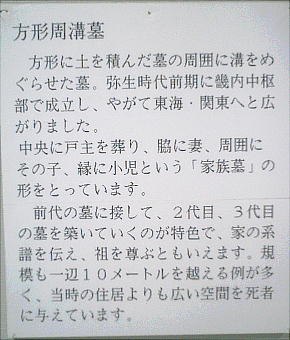 方形周溝墓
方形に土を積んだ墓の周囲に溝をめ
ぐらせた墓。弥生時代前期に畿内中枢
部で成立し、やがて東海・関東へと広
がりました。
中央に戸主を葬り、脇に妻、周囲に
その子、縁に小児という「家族墓」の
形をとっています。
前代の墓に接して、２代目、３代目
の墓を築いていくのが特色で、家の系
譜を伝え、祖を尊ぶともいえます。規
模も一辺１０メートルを越える例が多
く、当時の住居よりも広い空間を死者
に与えています。